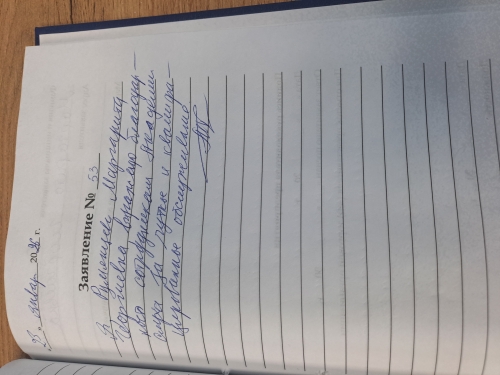 23 январ 2026 г.
Заявление № 53
Я Румянцева Маргарита
Георгиевна выражаю благодар-
ность сотрудникам Академии
мира за чуткое и квалифи-
цированное обслуживание